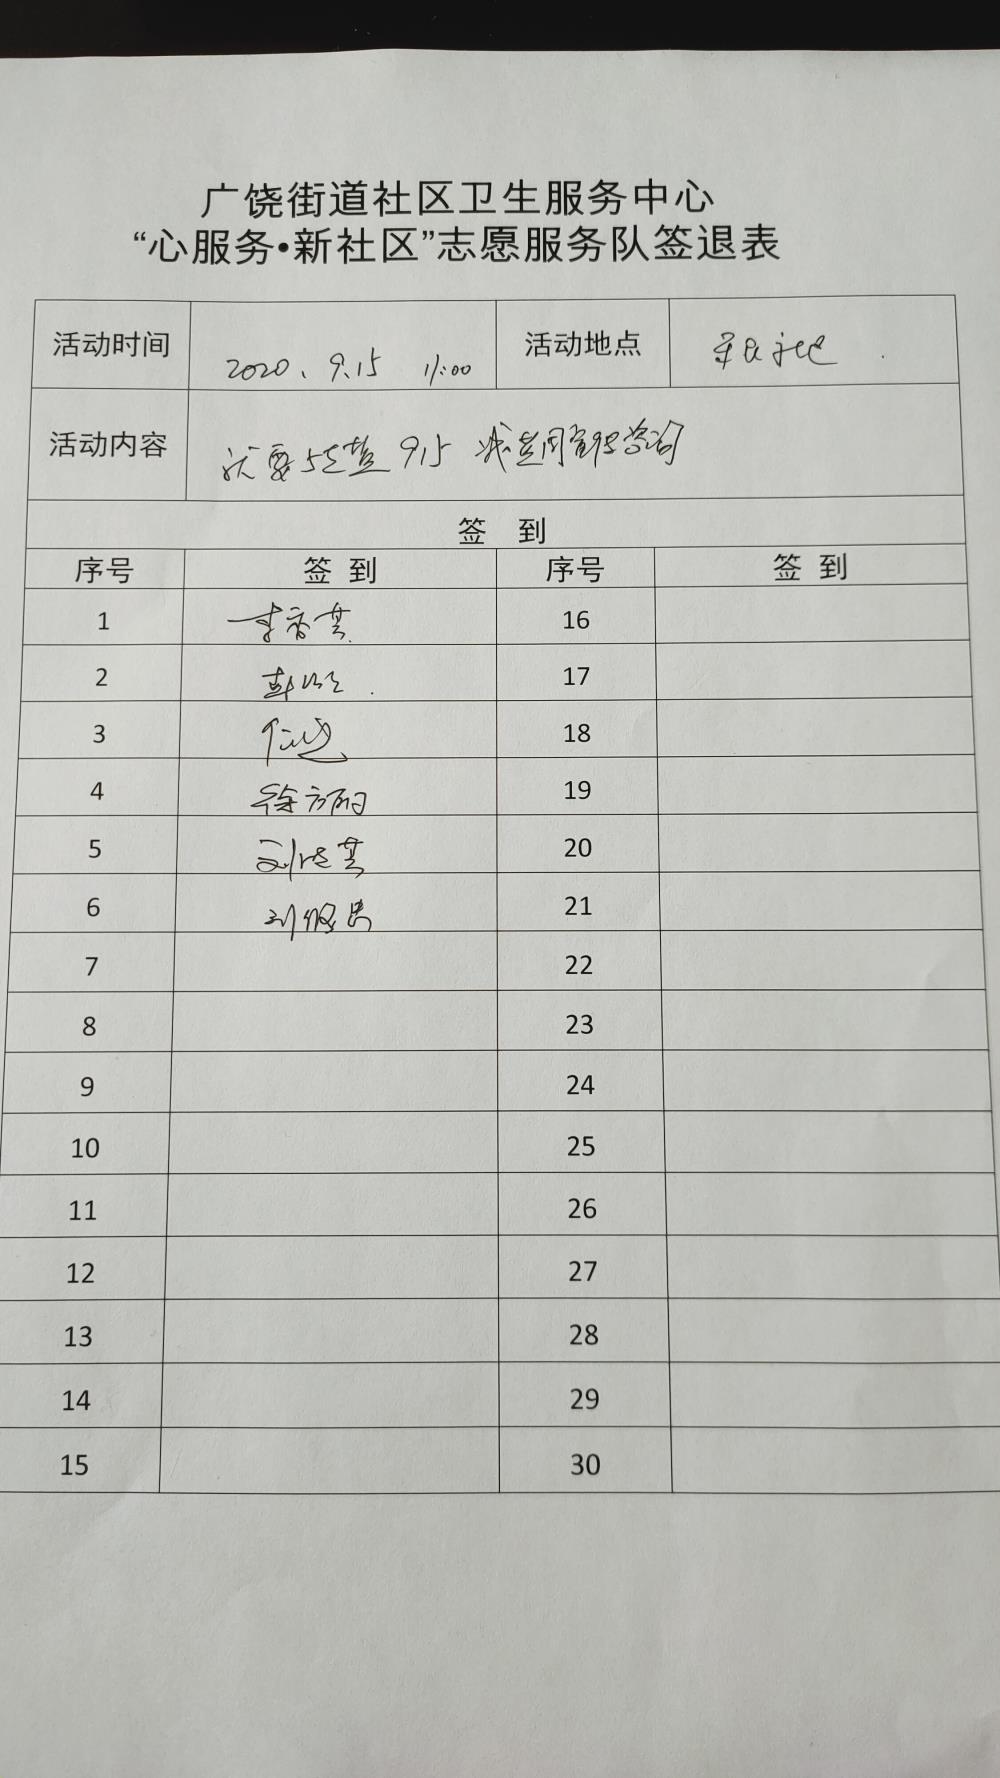 广饶街道社区卫生服务中心
“心服务•新社区”志愿服务队签退表
活动时间 2020、9.15 11:00 活动地点
活动内容 9.15
签 到
序号 签 到 序号 签 到
1 李秀英 16
2 17
3 18
4 徐方丽 19
5 20
6 21
7 22
8 23
9 24
10 25
11 26
12 27
13 28
14 29
15 30